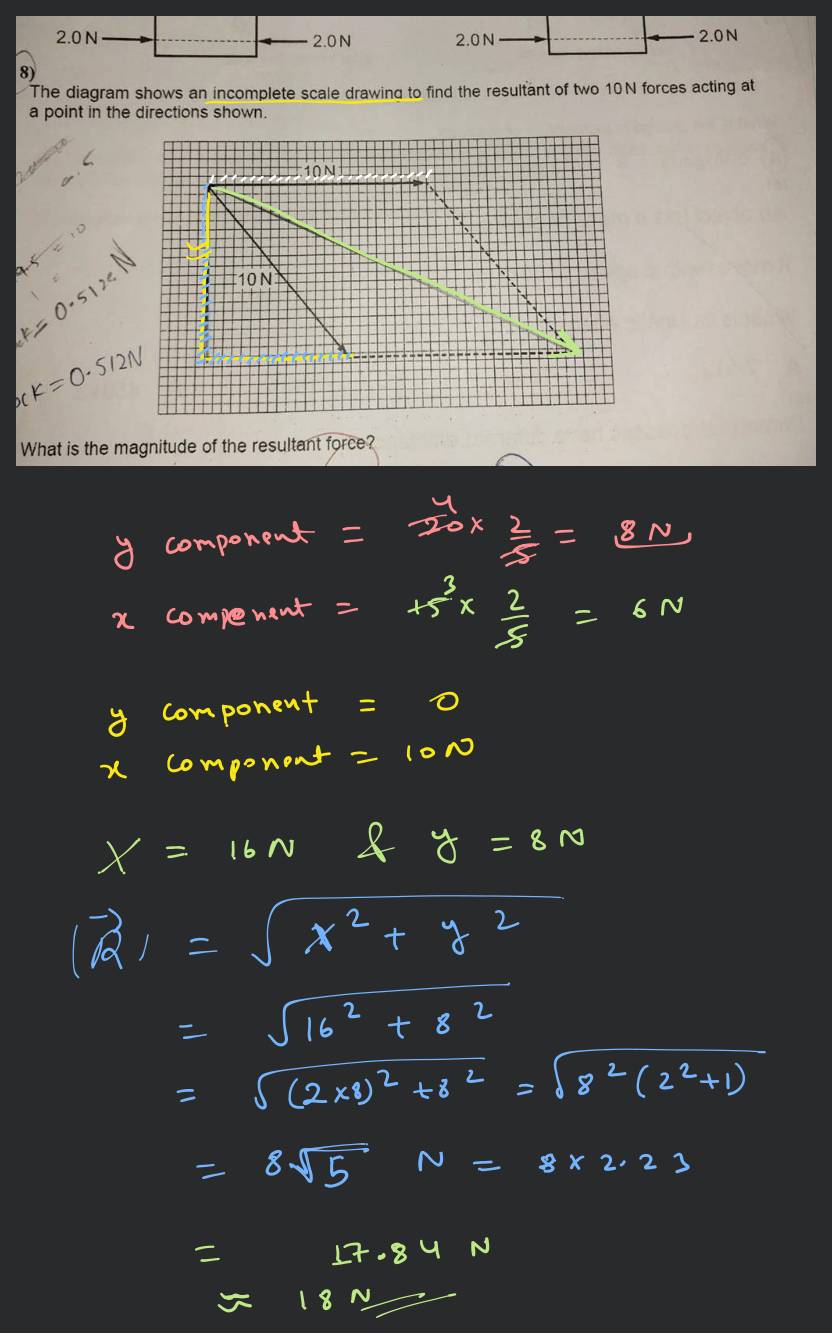 2.0 N 2.0 N 2.0 N 2.0 N
8)
The diagram shows an incomplete scale drawing to find the resultant of two 10 N forces acting at
a point in the directions shown.
10 N
10 N
K = 0.512 N
K = 0.512N
What is the magnitude of the resultant force?
y component = 20 4 × 2/5 = 8 N
x component = 15 3 × 2/5 = 6 N
y component = 0
x component = 10 N
X = 16 N & y = 8 N
|R| = √x² + y²
= √16² + 8²
= √(2×8)² + 8² = √8² (2² + 1)
= 8√5 N = 8 × 2.23
= 17.84 N
≈ 18 N